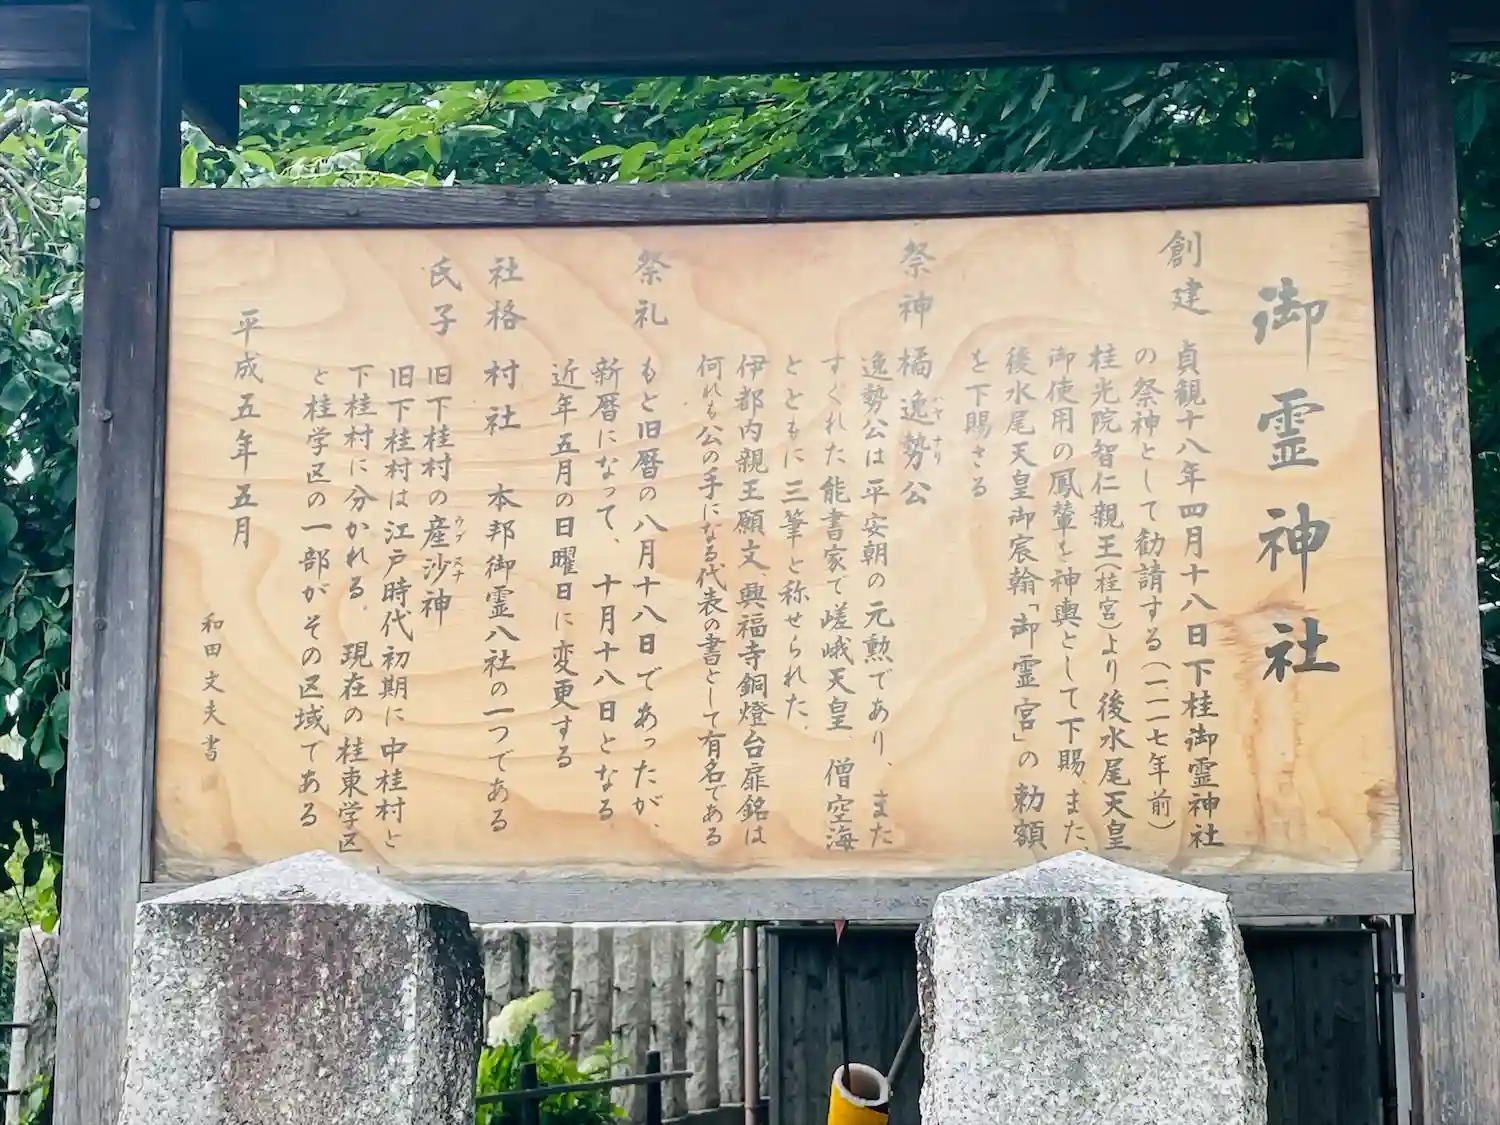 御霊神社
創建
貞観十八年四月十八日下桂御霊神社
の祭神として勧請する(一一一七年前)
桂光院智仁親王(桂宮)より後水尾天皇
御使用の鳳輦を神輿として下賜、また、
後水尾天皇御宸翰「御霊宮」の勅額
を下賜さる
祭神 橘逸勢公
ハヤナリ
逸勢公は平安朝の元勲であり、また
すぐれた能書家で嵯峨天皇 僧空海
とともに三筆と称せられた、
伊都内親王願文、興福寺銅燈台扉銘は
何れも公の手になる代表の書として有名である
祭礼
もと旧暦の八月十八日であったが、
新暦になって、十月十八日となる
近年五月の日曜日に変更する
社格 村社 本邦御霊八社の一つである
氏子
旧下桂村の産沙神
ウブスナ
旧下桂村は江戸時代初期に中桂村と
下桂村に分かれる、現在の桂東学区
と桂学区の一部がその区域である
平成五年五月
和田文夫書